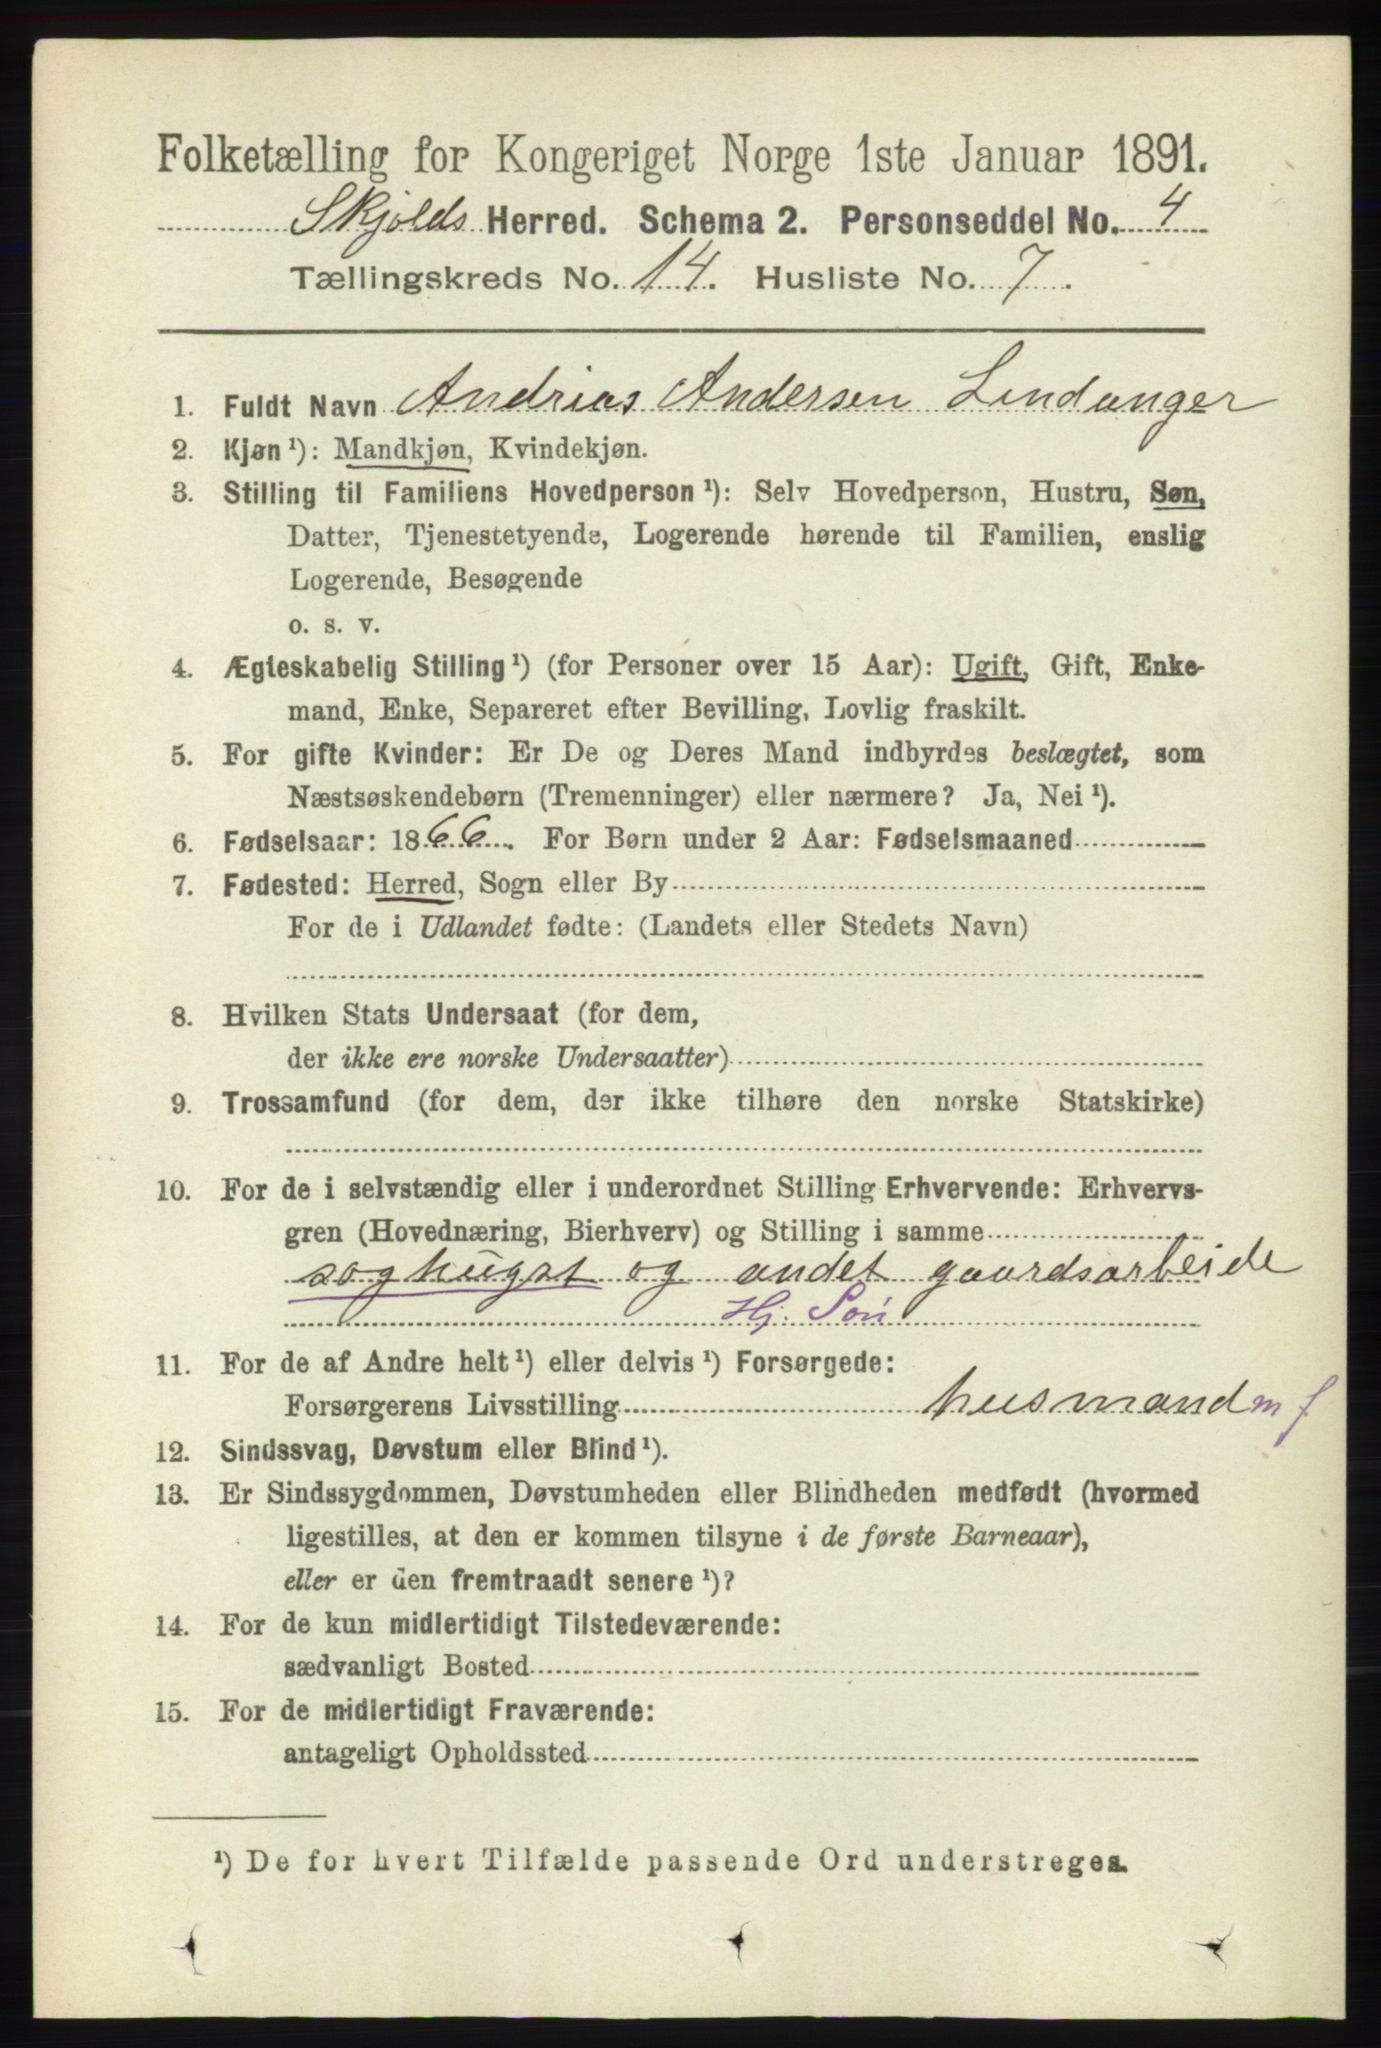 Folketælling for Kongeriget Norge 1ste Januar 1891.
Skjolds Herred. Schema 2. Personseddel No. 4
Tællingskreds No. 14. Husliste No. 7.
1. Fuldt Navn Andrias Andersen Lindanger
2. Kjøn ¹): Mandkjøn, Kvindekjøn.
3. Stilling til Familiens Hovedperson ¹): Selv Hovedperson, Hustru, Søn,
Datter, Tjenestetyende, Logerende hørende til Familien, enslig
Logerende, Besøgende
o. s. v.
4. Ægteskabelig Stilling ¹) (for Personer over 15 Aar): Ugift, Gift, Enke-
mand, Enke, Separeret efter Bevilling, Lovlig fraskilt.
5. For gifte Kvinder: Er De og Deres Mand indbyrdes beslægtet, som
Næstsøskendebørn (Tremenninger) eller nærmere? Ja, Nei ¹).
6. Fødselsaar: 1866. For Børn under 2 Aar: Fødselsmaaned
7. Fødested: Herred, Sogn eller By
For de i Udlandet fødte: (Landets eller Stedets Navn)
8. Hvilken Stats Undersaat (for dem,
der ikke ere norske Undersaatter)
9. Trossamfund (for dem, der ikke tilhøre den norske Statskirke)
10. For de i selvstændig eller i underordnet Stilling Erhvervende: Erhvervs-
gren (Hovednæring, Bierhverv) og Stilling i samme
soghugst og andet gaardsarbeide
Hj. Søn
11. For de af Andre helt ¹) eller delvis ¹) Forsørgede:
Forsørgerens Livsstilling husmand m f
12. Sindssvag, Døvstum eller Blind ¹).
13. Er Sindssygdommen, Døvstumheden eller Blindheden medfødt (hvormed
ligestilles, at den er kommen tilsyne i de første Barneaar),
eller er den fremtraadt senere ¹)?
14. For de kun midlertidigt Tilstedeværende:
sædvanligt Bosted
15. For de midlertidigt Fraværende:
antageligt Opholdssted
¹) De for hvert Tilfælde passende Ord understreges.